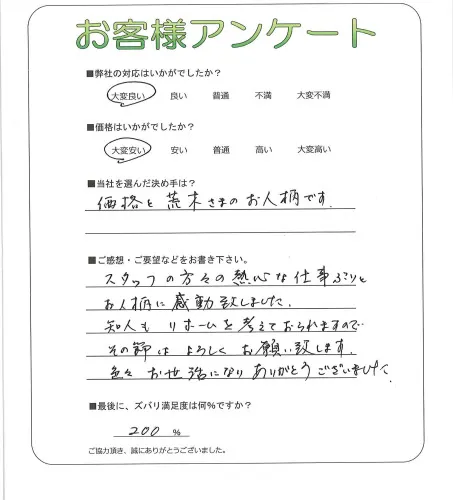 お客様アンケート
■弊社の対応はいかがでしたか？
大変良い 良い 普通 不満 大変不満
■価格はいかがでしたか？
大変安い 安い 普通 高い 大変高い
■当社を選んだ決め手は？
価格と荒木さまのお人柄です。
■ご感想・ご要望などをお書き下さい。
スタッフの方々の熱心な仕事ぶりと
お人柄に感動致しました。
知人もリホームを考えておられますので
その節はよろしくお願い致します。
色々お世話になりありがとうございました。
■最後に、ズバリ満足度は何％ですか？
200 ％
ご協力頂き、誠にありがとうございました。